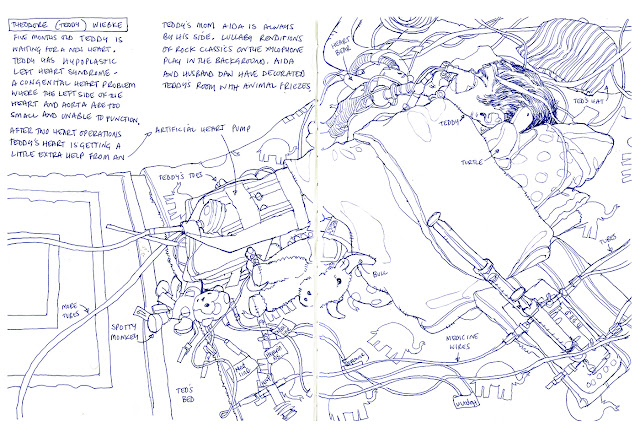 THEODORE (TEDDY) WIEBKE
FIVE MONTHS OLD TEDDY IS
WAITING FOR A NEW HEART.
TEDDY HAS HYPOPLASTIC
LEFT HEART SYNDROME -
A CONGENITAL HEART PROBLEM
WHERE THE LEFT SIDE OF THE
HEART AND AORTA ARE TOO
SMALL AND UNABLE TO FUNCTION.
AFTER TWO HEART OPERATIONS
TEDDY'S HEART IS GETTING A
LITTLE EXTRA HELP FROM AN
ARTIFICIAL HEART PUMP
TEDDY'S MOM AIDA IS ALWAYS
BY HIS SIDE. LULLABY RENDITIONS
OF ROCK CLASSICS ON THE XYLOPHONE
PLAY IN THE BACKGROUND. AIDA
AND HUSBAND DAN HAVE DECORATED
TEDDY'S ROOM WITH ANIMAL FRIEZES
HEART
BEAR
TED'S HAT
TEDDY
TURTLE
TEDDY'S TOES
TUBES
BULL
MORE
TUBES
SPOTTY
MONKEY
MEDICINE
WIRES
TEDS
BED